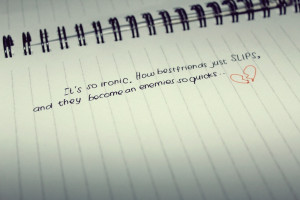 It's so ironic. How bestfriends just SLIPS,
and they become an enemies so quick..